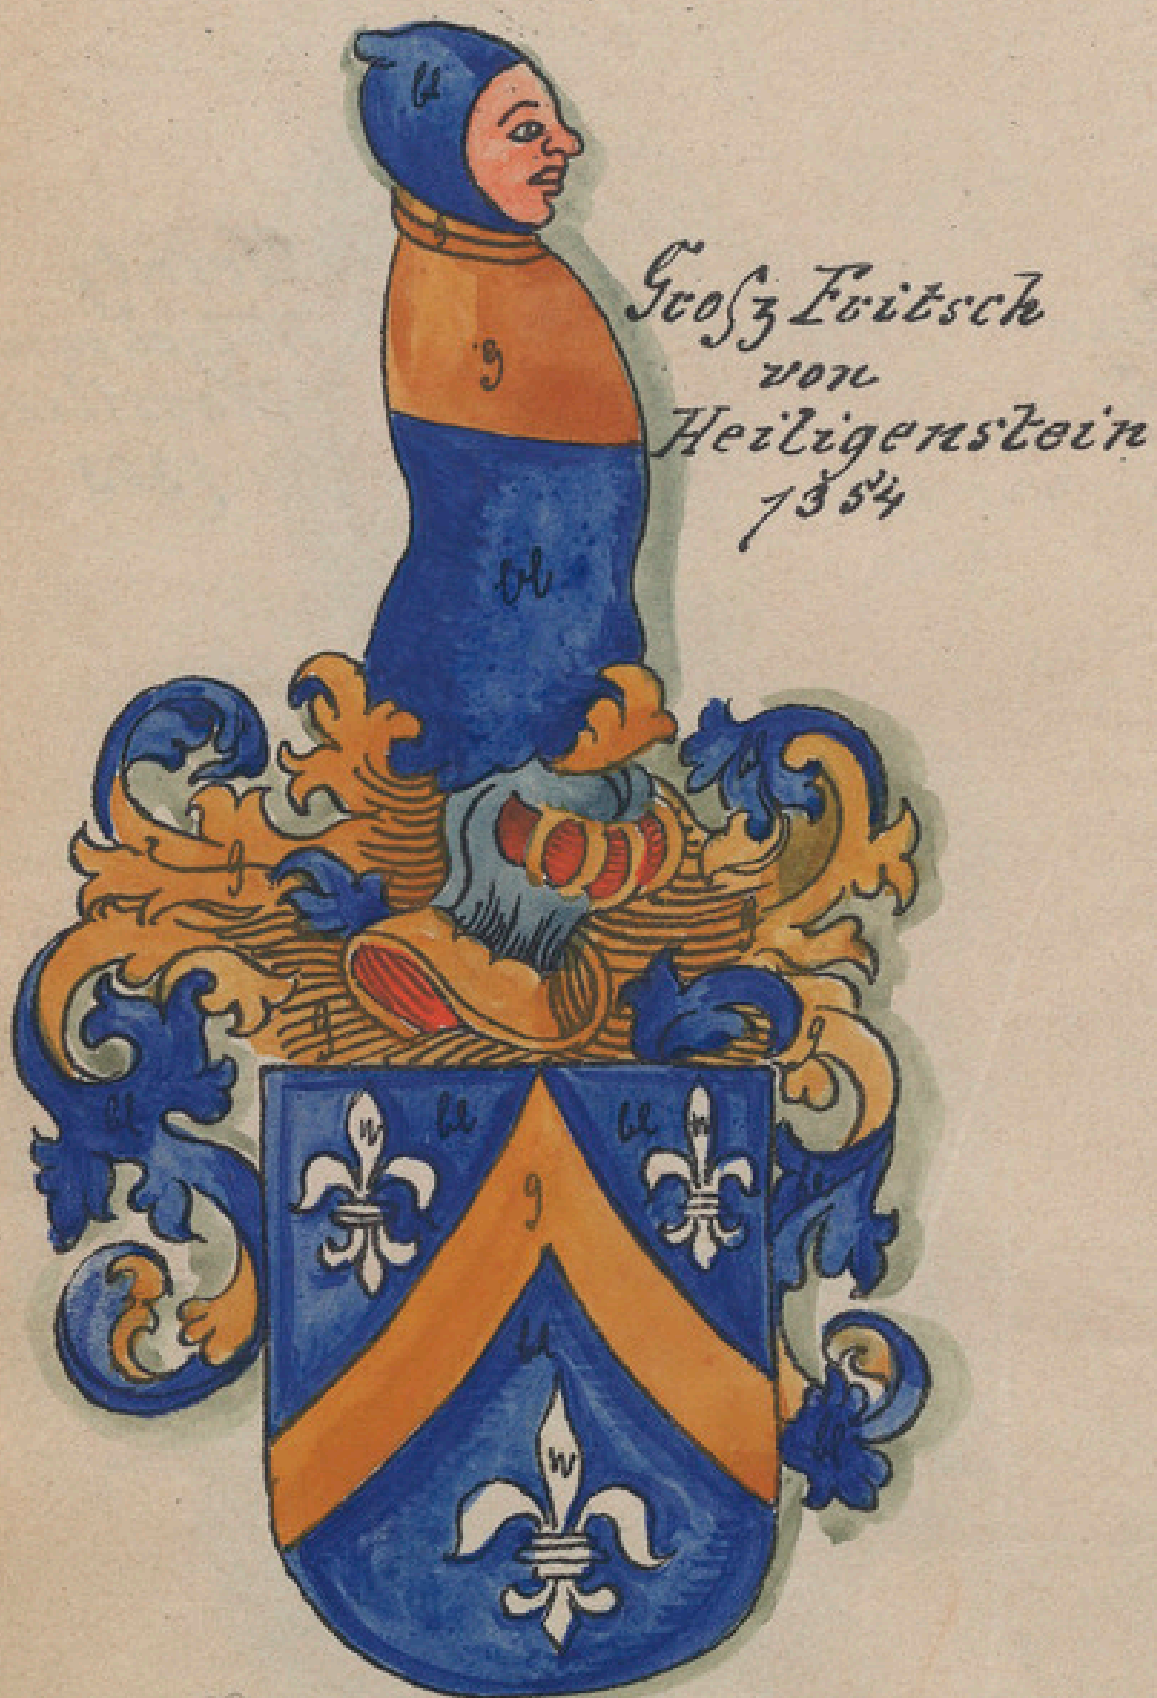 bl
g
Groſz Fritsch
von
Heiligenstein
1354
g
bl
bl
g
g
g
bl
w
bl
bl
w
g
bl
bl
w
bl